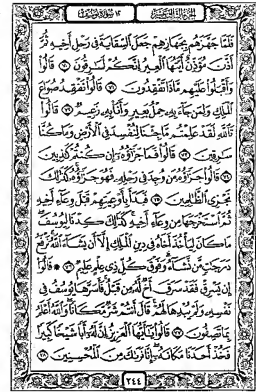 سُورَةُ يُوسُفَ ١٢
فَلَمَّا جَهَّزَهُم بِجَهَازِهِمْ جَعَلَ ٱلسِّقَايَةَ فِى رَحْلِ أَخِيهِ ثُمَّ
أَذَّنَ مُؤَذِّنٌ أَيَّتُهَا ٱلْعِيرُ إِنَّكُمْ لَسَٰرِقُونَ ٧٠ قَالُوا۟
وَأَقْبَلُوا۟ عَلَيْهِم مَّاذَا تَفْقِدُونَ ٧١ قَالُوا۟ نَفْقِدُ صُوَاعَ
ٱلْمَلِكِ وَلِمَن جَآءَ بِهِۦ حِمْلُ بَعِيرٍ وَأَنَا۠ بِهِۦ زَعِيمٌ ٧٢ قَالُوا۟
تَٱللَّهِ لَقَدْ عَلِمْتُم مَّا جِئْنَا لِنُفْسِدَ فِى ٱلْأَرْضِ وَمَا كُنَّا
سَٰرِقِينَ ٧٣ قَالُوا۟ فَمَا جَزَٰٓؤُهُۥٓ إِن كُنتُمْ كَٰذِبِينَ
٧٤ قَالُوا۟ جَزَٰٓؤُهُۥ مَن وُجِدَ فِى رَحْلِهِۦ فَهُوَ جَزَٰٓؤُهُۥ كَذَٰلِكَ
نَجْزِى ٱلظَّٰلِمِينَ ٧٥ فَبَدَأَ بِأَوْعِيَتِهِمْ قَبْلَ وِعَآءِ أَخِيهِ
ثُمَّ ٱسْتَخْرَجَهَا مِن وِعَآءِ أَخِيهِ كَذَٰلِكَ كِدْنَا لِيُوسُفَ
مَا كَانَ لِيَأْخُذَ أَخَاهُ فِى دِينِ ٱلْمَلِكِ إِلَّآ أَن يَشَآءَ ٱللَّهُ نَرْفَعُ
دَرَجَٰتٍ مَّن نَّشَآءُ وَفَوْقَ كُلِّ ذِى عِلْمٍ عَلِيمٌ ٧٦ ۞ قَالُوٓا۟
إِن يَسْرِقْ فَقَدْ سَرَقَ أَخٌ لَّهُۥ مِن قَبْلُ فَأَسَرَّهَا يُوسُفُ فِى
نَفْسِهِۦ وَلَمْ يُبْدِهَا لَهُمْ قَالَ أَنتُمْ شَرٌّ مَّكَانًا وَٱللَّهُ أَعْلَمُ
بِمَا تَصِفُونَ ٧٧ قَالُوا۟ يَٰٓأَيُّهَا ٱلْعَزِيزُ إِنَّ لَهُۥٓ أَبًا شَيْخًا كَبِيرًا
فَخُذْ أَحَدَنَا مَكَانَهُۥٓ إِنَّا نَرَىٰكَ مِنَ ٱلْمُحْسِنِينَ ٧٨
٢٤٤